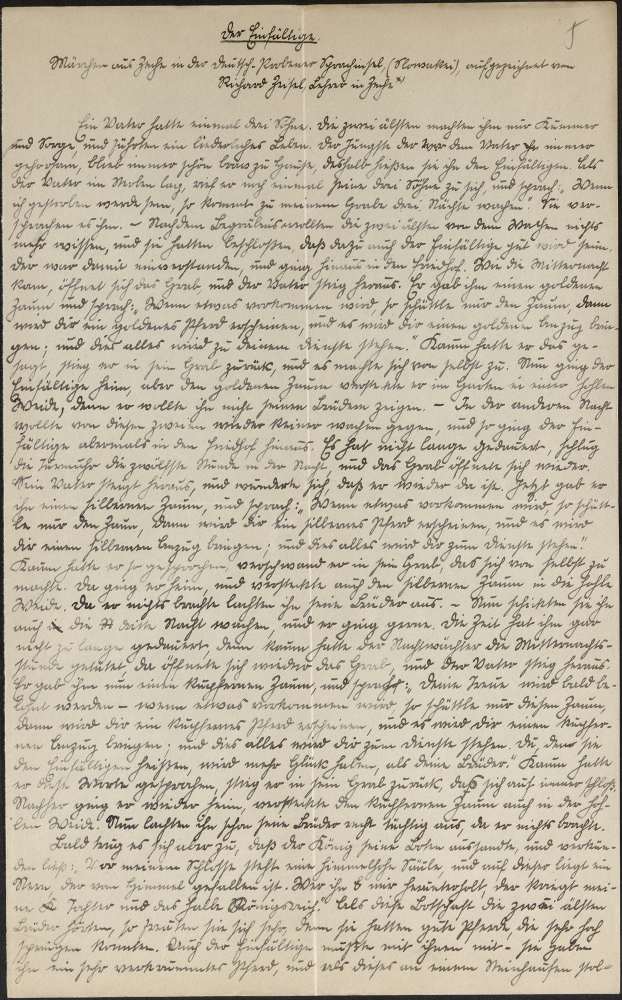 Der Einfältige.
5
Märchen aus Zeche in der Deutsch-Probener Sprachinsel, (Slowakei), aufgezeichnet von
Richard Zeisel, Lehrer in Zeche
Ein Vater hatte einmal drei Söhne. Die zwei ältesten machten ihm nur Kummer
und Sorge, und führten ein liederliches Leben. Der Jüngste der war dem Vater immer
gehorsam, blieb immer schön brav zu Hause, deshalb hießen sie ihn den Einfältigen. Als
der Vater im Sterben lag, rief er noch einmal seine drei Söhne zu sich, und sprach: „Wenn
ich gestorben werde sein, so kommt zu meinem Grabe drei Nächte wachen." Sie ver-
sprachen es ihm. – Nach dem Begräbnis wollten die zwei ältesten von dem Wachen nichts
mehr wissen, und sie hatten beschlossen, daß dazu auch der Einfältige gut wird sein.
Der war damit einverstanden, und ging hinaus in den Friedhof. Wie die Mitternacht
kam, öffnet sich das Grab und der Vater stieg heraus. Er gab ihm einen goldenen
Zaum und sprach: „Wenn etwas vorkommen wird, so schüttle nur den Zaum, dann
wird dir ein goldenes Pferd erscheinen, und es wird dir einen goldenen Anzug brin-
gen; und dies alles wird zu deinem Dienste stehen." Kaum hatte er das ge-
sagt, stieg er in sein Grab zurück, und es machte sich von selbst zu. Nun ging der
Einfältige heim, aber den goldenen Zaum versteckte er im Garten in einer hohlen
Weide, denn er wollte ihn nicht seinen Brüdern zeigen. – In der anderen Nacht
wollte von diesen zweien wieder keiner wachen gegen, und so ging der Ein-
fältige abermals in den Friedhof hinaus. Es hat nicht lange gedauert, schlug
die Turmuhr die zwölfte Stunde in der Nacht, und das Grab öffnete sich wieder.
Sein Vater steigt heraus, und wunderte sich, daß er wieder da ist. Jetzt gab er
ihm einen silbernen Zaum, und sprach: „Wenn etwas vorkommen wird, so schütt-
le nur den Zaum, dann wird dir ein silbernes Pferd erscheinen, und es wird
dir einen silbernen Anzug bringen; und dies alles wird dir zum Dienste stehen".
Kaum hatte er so gesprochen, verschwand er in sein Grab, das sich von selbst zu
machte. Da ging er heim, und versteckte auch den silbernen Zaum in die hohle
Weide. Da er nichts brachte lachten ihn seine Brüder aus. – Nun schickten sie ihn
auch die dritte Nacht wachen, und er ging gerne. Die Zeit hat ihm gar
nicht zu lange gedauert, denn kaum hatte der Nachtwächter die Mitternachts-
stunde getutet da öffnete sich wieder das Grab, und der Vater stieg heraus.
Er gab ihm nun einen kupfernen Zaum, und sprach: „Deine Treue wird bald be-
lohnt werden – wenn etwas vorkommen wird, so schüttle nur diesen Zaum,
dann wird dir ein kupfernes Pferd erscheinen, und es wird dir einen kupfer-
nen Anzug bringen; und dies alles wird dir zum Dienste stehen. Du, den sie
den Einfältigen heißen, wird mehr Glück haben, als deine Brüder." Kaum hatte
er diese Worte gesprochen, stieg er in sein Grab zurück, daß sich auf immer schloß.
Nachher ging er wieder heim, versteckte den kupfernen Zaum auch in der hoh-
len Weide. Nun lachten ihn schon seine Brüder recht tüchtig aus, da er nichts brachte.
Bald trug es sich aber zu, daß der König seine Boten aussandte, und verkün-
den ließ: „Vor meinem Schlosse steht eine himmelhohe Säule, und auf dieser liegt ein
Stern, der vom Himmel gefallen ist. Wer ihn mir herunterholt, der kriegt mei-
ne Tochter und das halbe Königreich." Als diese Botschaft die zwei ältesten
Brüder hörten, so freuten sie sich sehr, denn sie hatten gute Pferde, die sehr hoch
springen konnten. Auch der Einfältige mußte mit ihnen mit – sie gaben
ihm ein sehr verkrummtes Pferd, und als dieses an einem Steinhaufen stol-